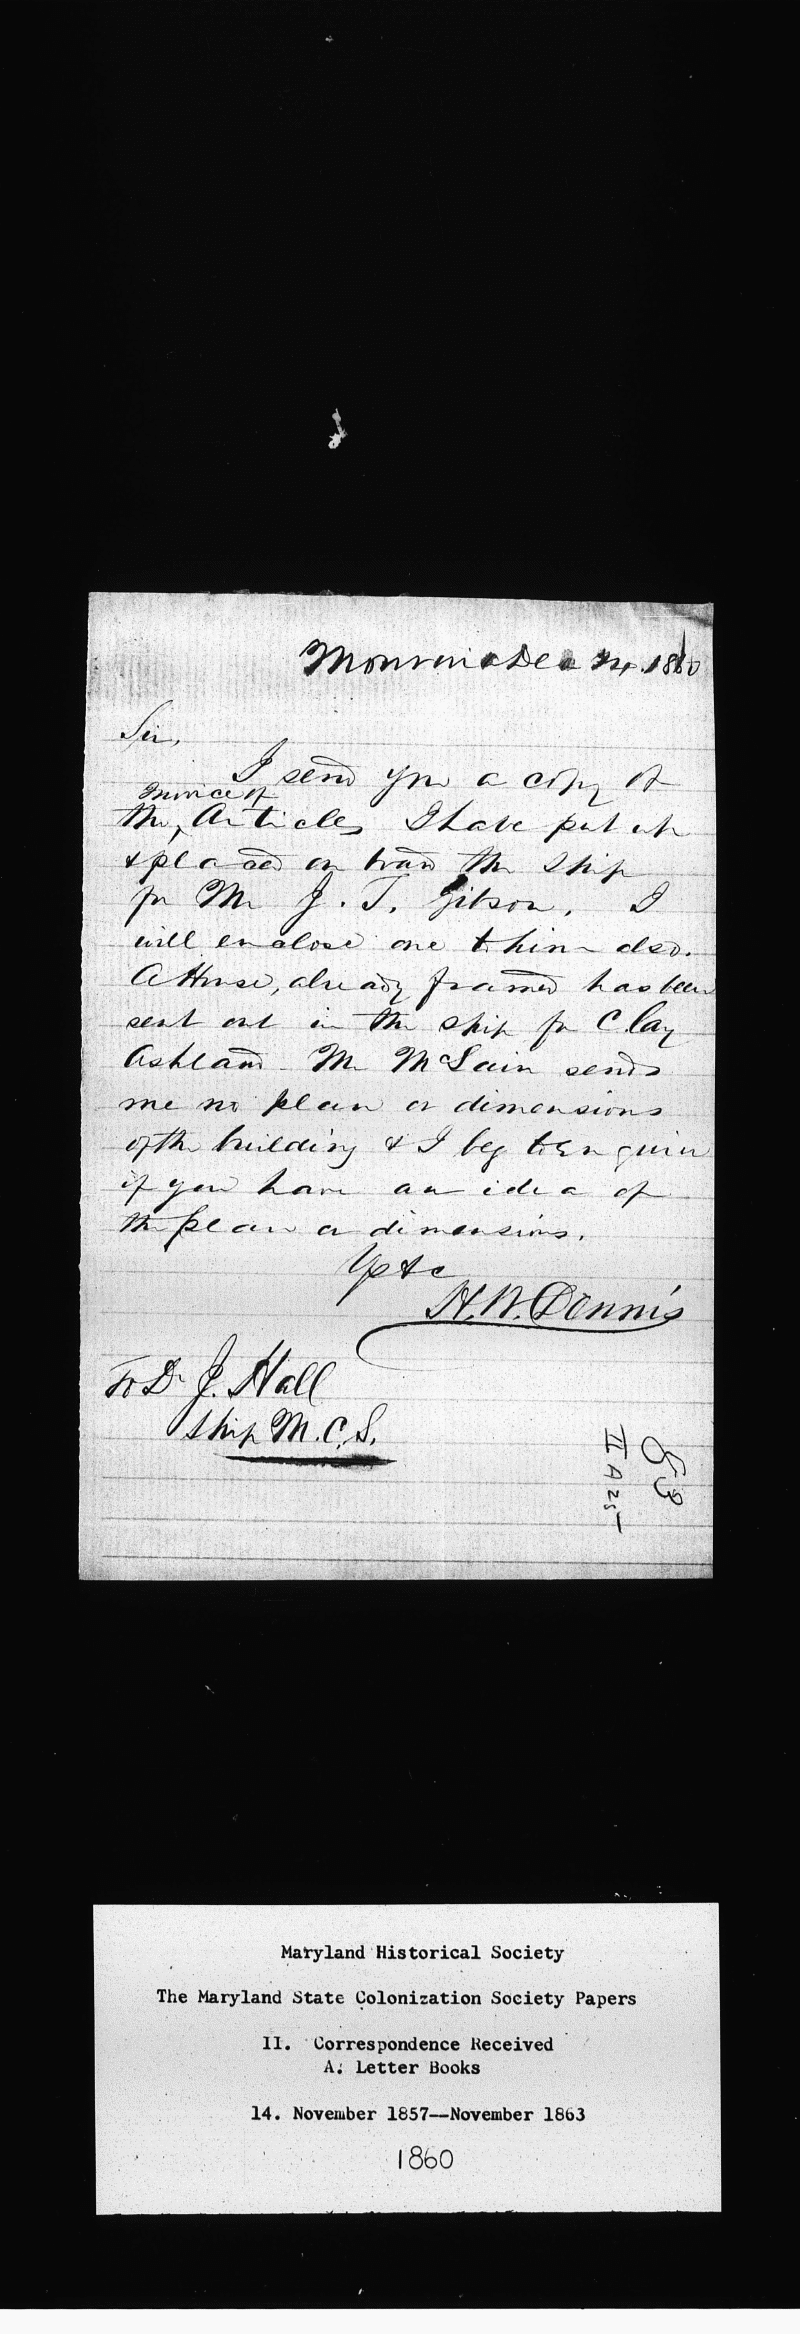 Monrovia Dec 1860
Sir,
I send you a copy of
Invoice of
the, Articles I have put up
& placed on board the Ship
for Mr J. T. Gibson. I
will enclose one to him also.
A House, already framed has been
sent out in the ship for Clay
Ashland. Mr McLain sends
me no plan or dimensions
of the building & I beg to Enquire
if you have an idea of
the plan or dimensions.
Yo &c
H. W. Dennis
To Dr J. Hall
Ship M. C. S.
83
II A 25
Maryland Historical Society
The Maryland State Colonization Society Papers
II. Correspondence Received
A. Letter Books
14. November 1857--November 1863
1860